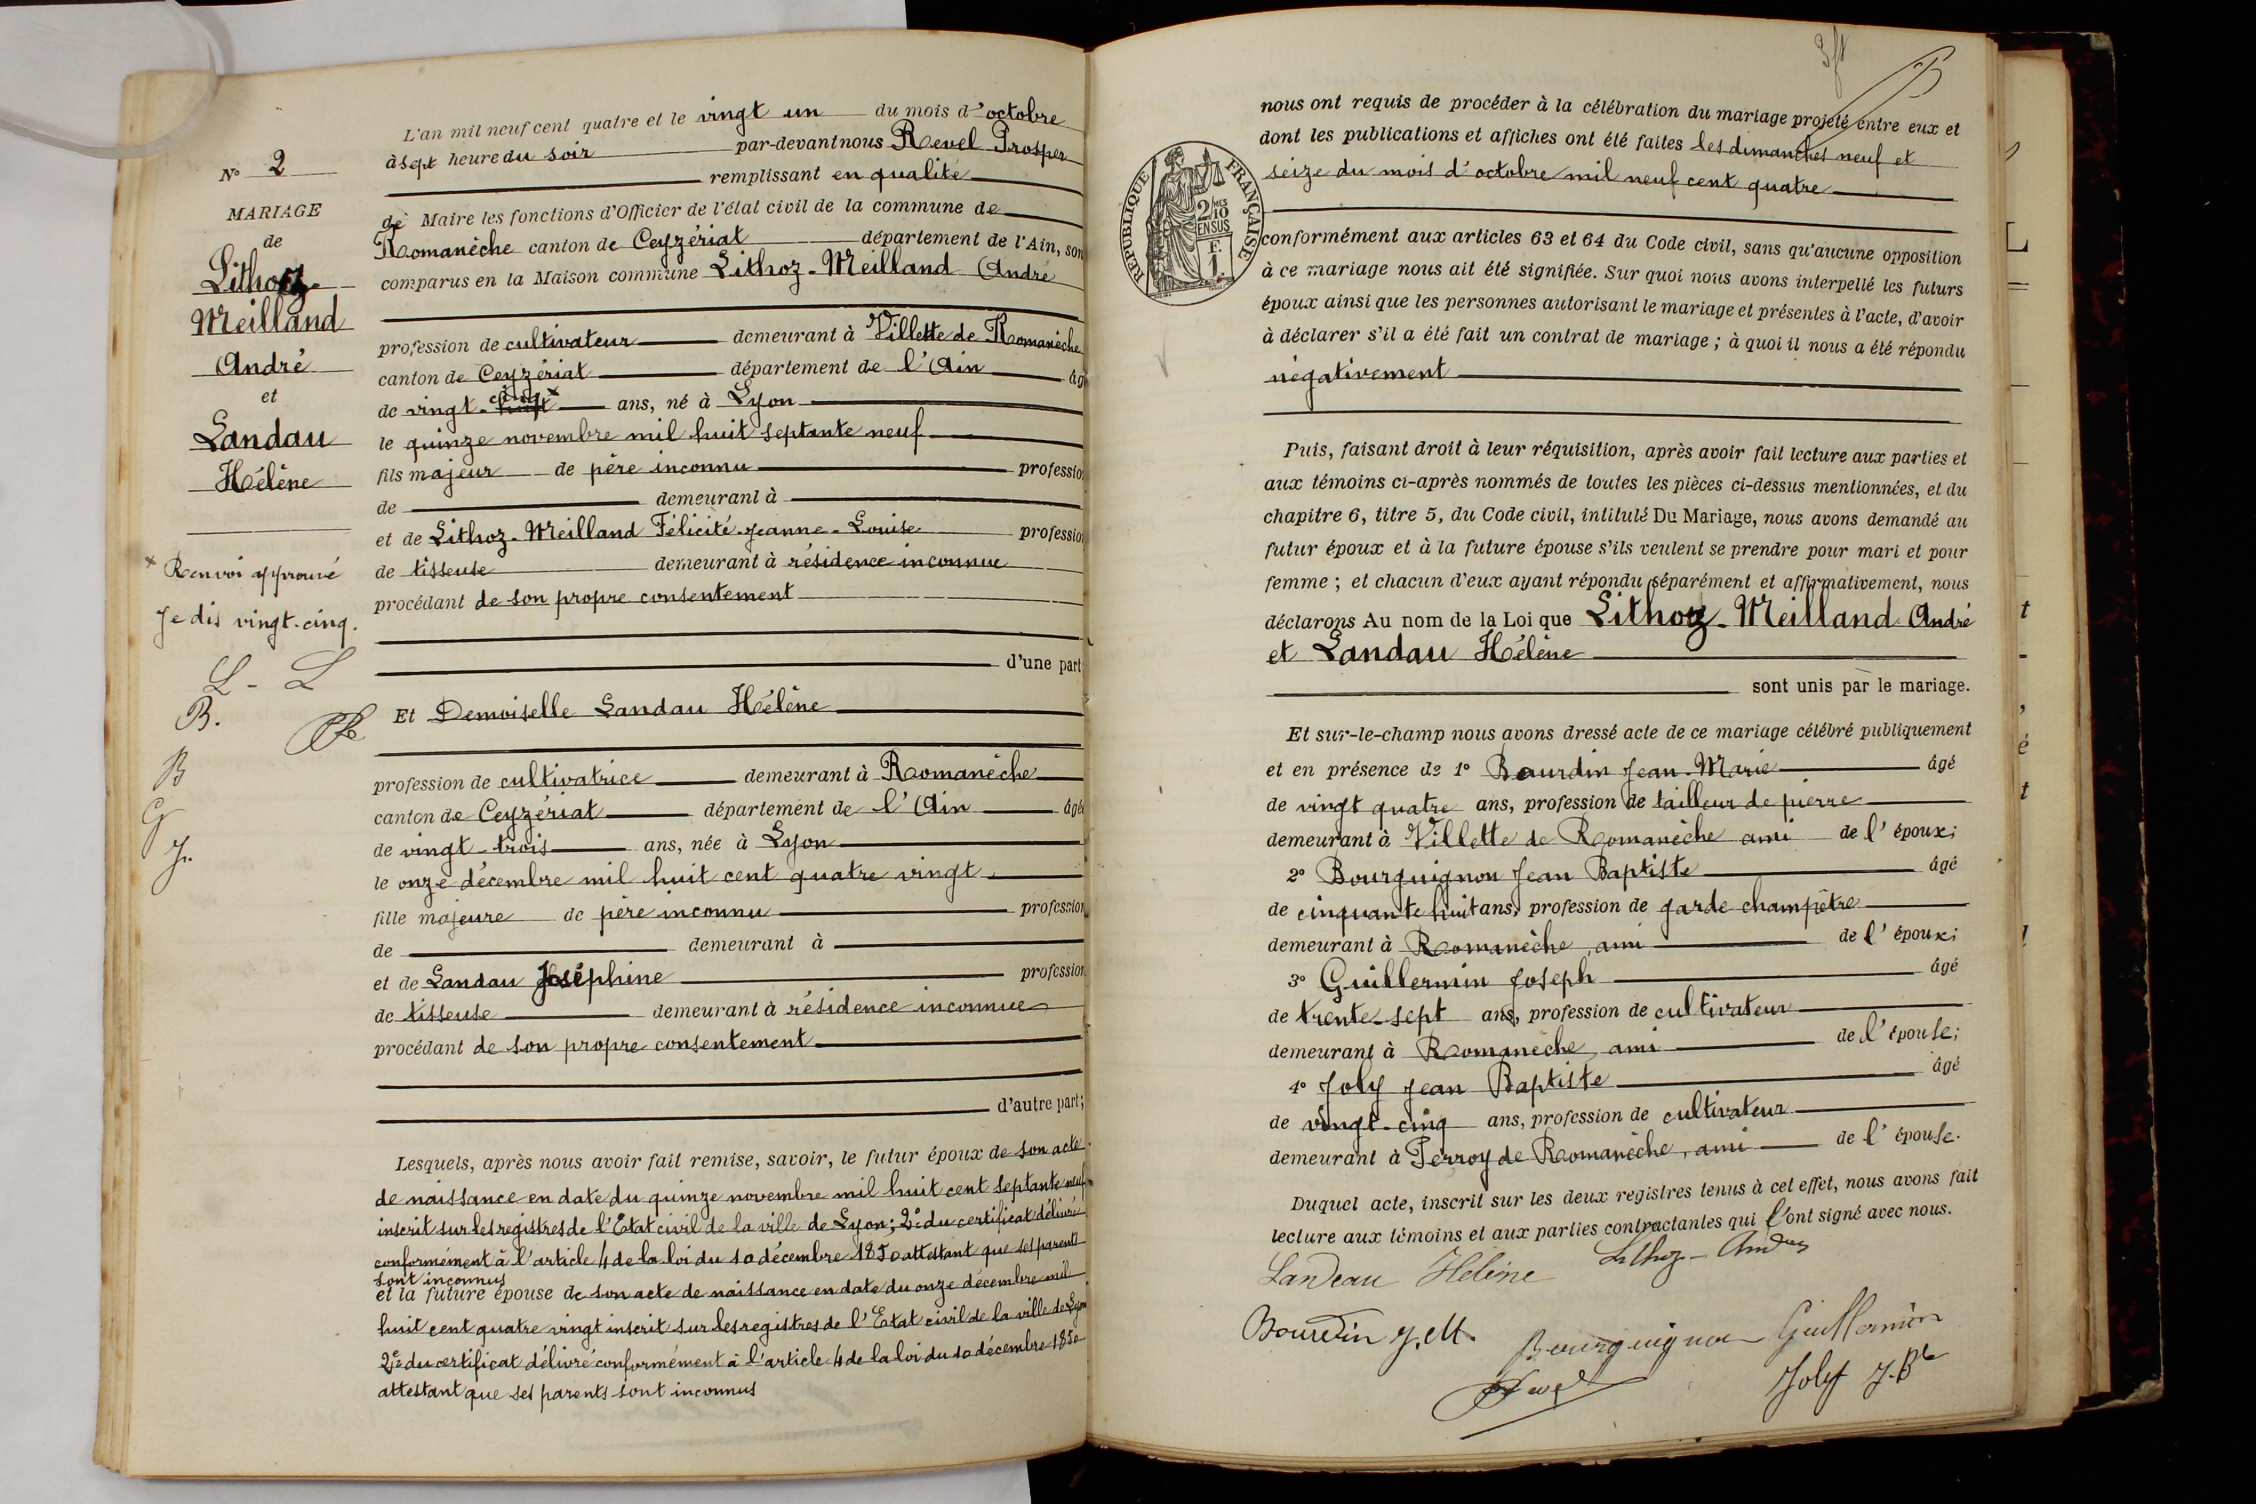 N° 2
MARIAGE
de
Lithoz-
Meilland
André
et
Landau
Hélène
x Renvoi approuvé
Je dis vingt-cinq.
L - L
B.
B
G
J.
L'an mil neuf cent quatre et le vingt un du mois d'octobre
à sept heure du soir par-devant nous Revel Prosper
remplissant en qualité
de Maire les fonctions d'Officier de l'état civil de la commune de
Romanèche canton de Ceyzériat département de l'Ain, son
comparus en la Maison commune Lithoz-Meilland André
profession de cultivateur demeurant à Villette de Romanèche
canton de Ceyzériat département de l'Ain âg
de vingt-cinq x ans, né à Lyon
le quinze novembre mil huit septante neuf
fils majeur de père inconnu profession
de demeurant à
et de Lithoz-Meilland Félicité-Jeanne-Louise profession
de tisseuse demeurant à résidence inconnue
procédant de son propre consentement
d'une part
Et Demoiselle Landau Hélène
profession de cultivatrice demeurant à Romanèche
canton de Ceyzériat département de l'Ain âgé
de vingt-trois ans, née à Lyon
le onze décembre mil huit cent quatre vingt
fille majeure de père inconnu profession
de demeurant à
et de Landau Joséphine profession
de tisseuse demeurant à résidence inconnue
procédant de son propre consentement
d'autre part;
Lesquels, après nous avoir fait remise, savoir, le futur époux de son acte
de naissance en date du quinze novembre mil huit cent septante neuf
inscrit sur les registres de l'Etat civil de la ville de Lyon; 2° du certificat délivré
conformément à l'article 4 de la loi du 10 décembre 1850 attestant que ses parents
sont inconnus
et la future épouse de son acte de naissance en date du onze décembre mil
huit cent quatre vingt inscrit sur les registres de l'Etat civil de la ville de Lyon
2° du certificat délivré conformément à l'article 4 de la loi du 10 décembre 1850
attestant que ses parents sont inconnus
nous ont requis de procéder à la célébration du mariage projeté entre eux et
dont les publications et affiches ont été faites les dimanches neuf et
seize du mois d'octobre mil neuf cent quatre
RÉPUBLIQUE FRANÇAISE
2/10
EN SUS
F.
1
conformément aux articles 63 et 64 du Code civil, sans qu'aucune opposition
à ce mariage nous ait été signifiée. Sur quoi nous avons interpellé les futurs
époux ainsi que les personnes autorisant le mariage et présentes à l'acte, d'avoir
à déclarer s'il a été fait un contrat de mariage; à quoi il nous a été répondu
négativement
Puis, faisant droit à leur réquisition, après avoir fait lecture aux parties et
aux témoins ci-après nommés de toutes les pièces ci-dessus mentionnées, et du
chapitre 6, titre 5, du Code civil, intitulé Du Mariage, nous avons demandé au
futur époux et à la future épouse s'ils veulent se prendre pour mari et pour
femme; et chacun d'eux ayant répondu séparément et affirmativement, nous
déclarons Au nom de la Loi que Lithoz-Meilland André
et Landau Hélène
sont unis par le mariage.
Et sur-le-champ nous avons dressé acte de ce mariage célébré publiquement
et en présence de 1° Bourdin Jean-Marie âgé
de vingt quatre ans, profession de tailleur de pierre
demeurant à Villette de Romanèche ami de l'époux;
2° Bourguignon Jean Baptiste âgé
de cinquante huit ans, profession de garde champêtre
demeurant à Romanèche, ami de l'époux;
3° Guillermin Joseph âgé
de trente-sept ans, profession de cultivateur
demeurant à Romanèche, ami de l'épouse;
4° Joly Jean Baptiste âgé
de vingt-cinq ans, profession de cultivateur
demeurant à Perroy de Romanèche, ami de l'épouse.
Duquel acte, inscrit sur les deux registres tenus à cet effet, nous avons fait
lecture aux témoins et aux parties contractantes qui l'ont signé avec nous.
Landeau Hélène Lithoz-André
Bourdin J. M.
Bourguignon Guillermin
Revel Joly J-Bte